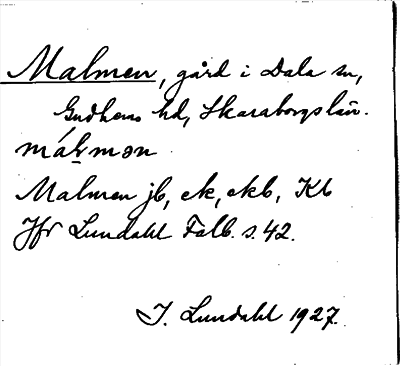 Malmen, gård i Dala sn,
Gudhems hd, Skaraborgs län.
málmən
Malmen jb, ek, ekb, Kb
Jfr Lundahl Falb. s. 42.
I. Lundahl 1927.